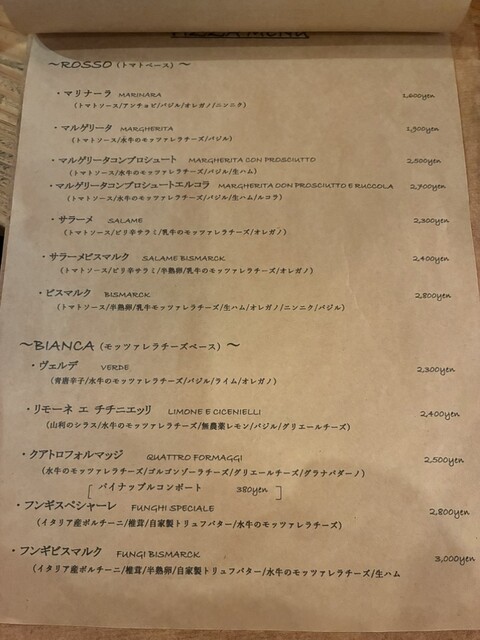 PIZZA MENU
～ROSSO（トマトベース）～
・マリナーラ MARINARA 1,600yen
（トマトソース/アンチョビ/バジル/オレガノ/ニンニク）
・マルゲリータ MARGHERITA 1,900yen
（トマトソース/水牛のモッツァレラチーズ/バジル）
・マルゲリータコンプロシュート MARGHERITA CON PROSCIUTTO 2,500yen
（トマトソース/水牛のモッツァレラチーズ/バジル/生ハム）
・マルゲリータコンプロシュートエルコラ MARGHERITA DON PROSCIUTTO E RUCCOLA 2,700yen
（トマトソース/水牛のモッツァレラチーズ/バジル/生ハム/ルコラ）
・サラーメ SALAME 2,300yen
（トマトソース/ピリ辛サラミ/乳牛のモッツァレラチーズ/オレガノ）
・サラーメビスマルク SALAME BISMARCK 2,400yen
（トマトソース/ピリ辛サラミ/半熟卵/乳牛のモッツァレラチーズ/オレガノ）
・ビスマルク BISMARCK 2,800yen
（トマトソース/半熟卵/乳牛のモッツァレラチーズ/生ハム/オレガノ/ニンニク/バジル）
～BIANCA（モッツァレラチーズベース）～
・ヴェルデ VERDE 2,300yen
（青唐辛子/水牛のモッツァレラチーズ/バジル/ライム/オレガノ）
・リモーネ エ チチニエッリ LIMONE E CICENIELLI 2,400yen
（山利のシラス/水牛のモッツァレラチーズ/無農薬レモン/バジル/グリエールチーズ）
・クアトロフォルマッジ QUATTRO FORMAGGI 2,500yen
（水牛のモッツァレラチーズ/ゴルゴンゾーラチーズ/グリエールチーズ/グラナパダーノ）
[ パイナップルコンポート 380yen ]
・フンギスペシャーレ FUNGHI SPECIALE 2,800yen
（イタリア産ポルチーニ/椎茸/自家製トリュフバター/水牛のモッツァレラチーズ）
・フンギビスマルク FUNGI BISMARCK 3,000yen
（イタリア産ポルチーニ/椎茸/半熟卵/自家製トリュフバター/水牛のモッツァレラチーズ/生ハム